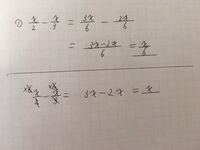 ① x/2 - x/3 = 3x/6 - 2x/6
= 3x-2x/6 = x/6
x6 x/2 - x6 x/3 = 3x-2x = x